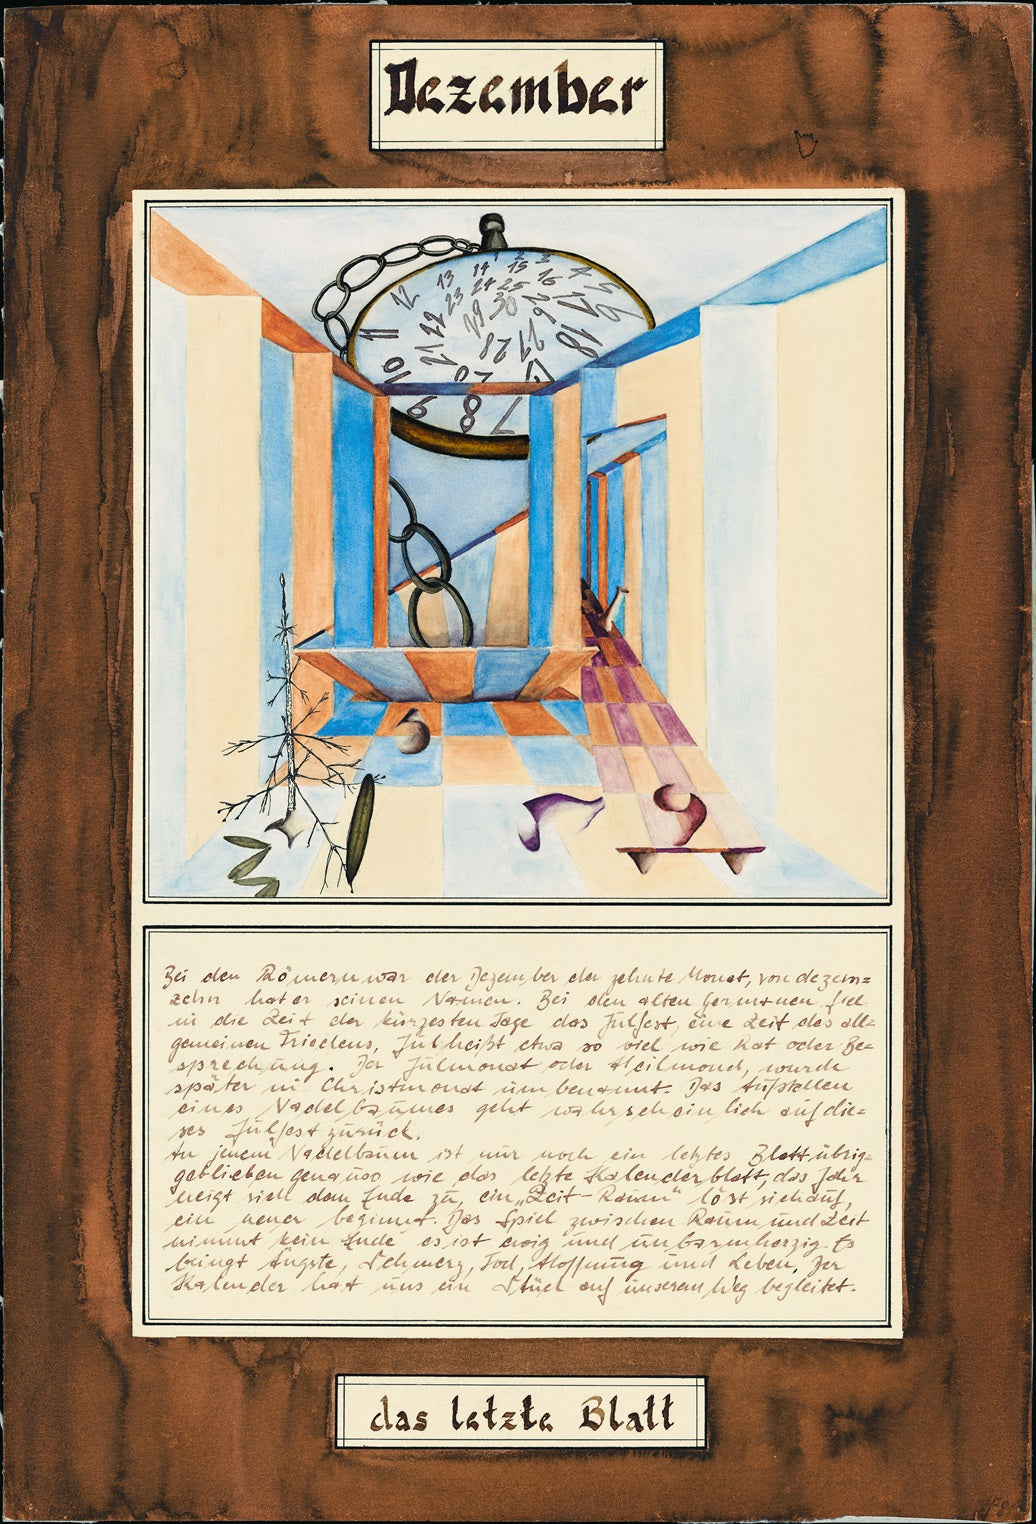 Dezember
12 13 14 1 2 3 4 5 6
11 22 23 24 25 15 16 17 18
10 21 29 30 26 27 28
9 8 7
Bei den Römern war der Dezember der zehnte Monat, von dezem=
zehn hat er seinen Namen. Bei den alten Germanen fiel
in die Zeit der kürzesten Tage das Julfest, eine Zeit des all=
gemeinen Friedens, Jul heißt etwa so viel wie Rat oder Be=
sprechung. Der Julmonat oder Heilmond, wurde
später in Christmonat umbenannt. Das Aufstellen
eines Nadelbaumes geht wahrscheinlich auf die=
ses Julfest zurück.
An jenem Nadelbaum ist nur noch ein letztes Blatt übrig=
geblieben genauso wie das letzte Kalenderblatt, das Jahr
neigt sich dem Ende zu, ein „Zeit-Raum“ löst sich auf,
ein neuer beginnt. Das Spiel zwischen Raum und Zeit
nimmt kein Ende es ist ewig und unbarmherzig. Es
bringt Ängste, Schmerz, Tod, Hoffnung und Leben. Der
Kalender hat uns ein Stück auf unserem Weg begleitet.
das letzte Blatt